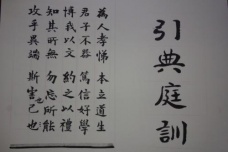 引典庭訓
為人孝悌 本立道生
君子不器 篤信好學
博我以文 約之以禮
知其所無 勿忘所能
攻乎異端 斯害也已也